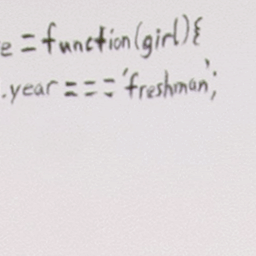 e = function(girl){
.year === 'freshman';